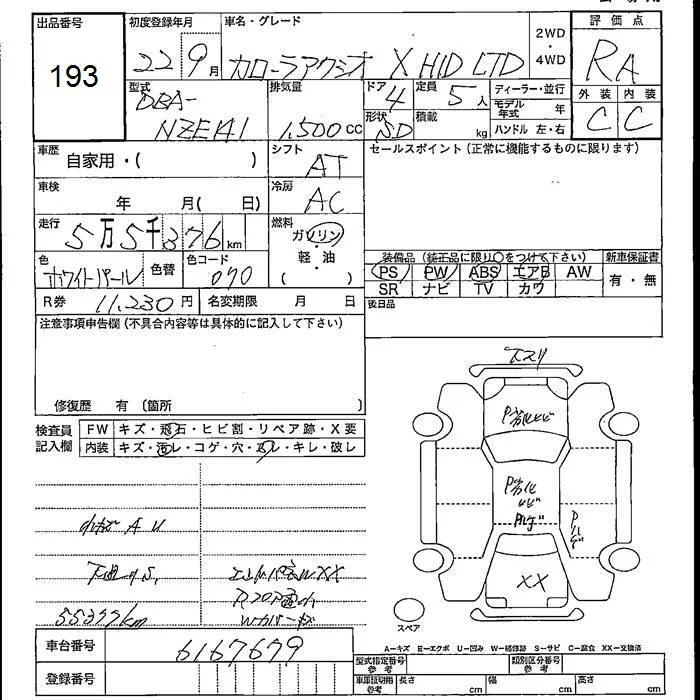 出品番号 初度登録年月 車名・グレード 2WD ・ 4WD 評価点
193 22 9月 カローラアクシオ X HID LTD RA
型式 DBA-NZE141 排気量 1,500cc ドア 4 定員 5人 ディーラー・並行 外装 内装
形状 SD 積載 kg モデル年式 年 C C
ハンドル 左・右
車歴 自家用・( ) シフト AT セールスポイント(正常に機能するものに限ります)
車検 年 月( 日) 冷房 AC
走行 5万5千376km 燃料 ガソリン・軽・油 ( )
色 ホワイトパール 色替 色コード 070 装備品(純正品に限り○をつけて下さい) 新車保証書
PS PW ABS エアB AW 有・無
SR ナビ TV カワ
R券 11,230円 名変期限 月 日 後日品
注意事項申告欄(不具合内容等は具体的に記入して下さい)
修復歴 有(箇所 )
検査員記入欄 FW キズ・飛石・ヒビ割・リペア跡・X要
内装 キズ・汚レ・コゲ・穴・スレ・キレ・破レ
下スリ
P劣化ヒビ
P劣化
XX
A U
XX
55377km
スペア
A－キズ E－エクボ U－凹み W－補修跡 S－サビ C－腐食 XX－交換済
車台番号 6167679
登録番号
型式指定番号 参考 類別区分番号 参考
車庫証明用 参考 長さ cm 幅 cm 高さ cm